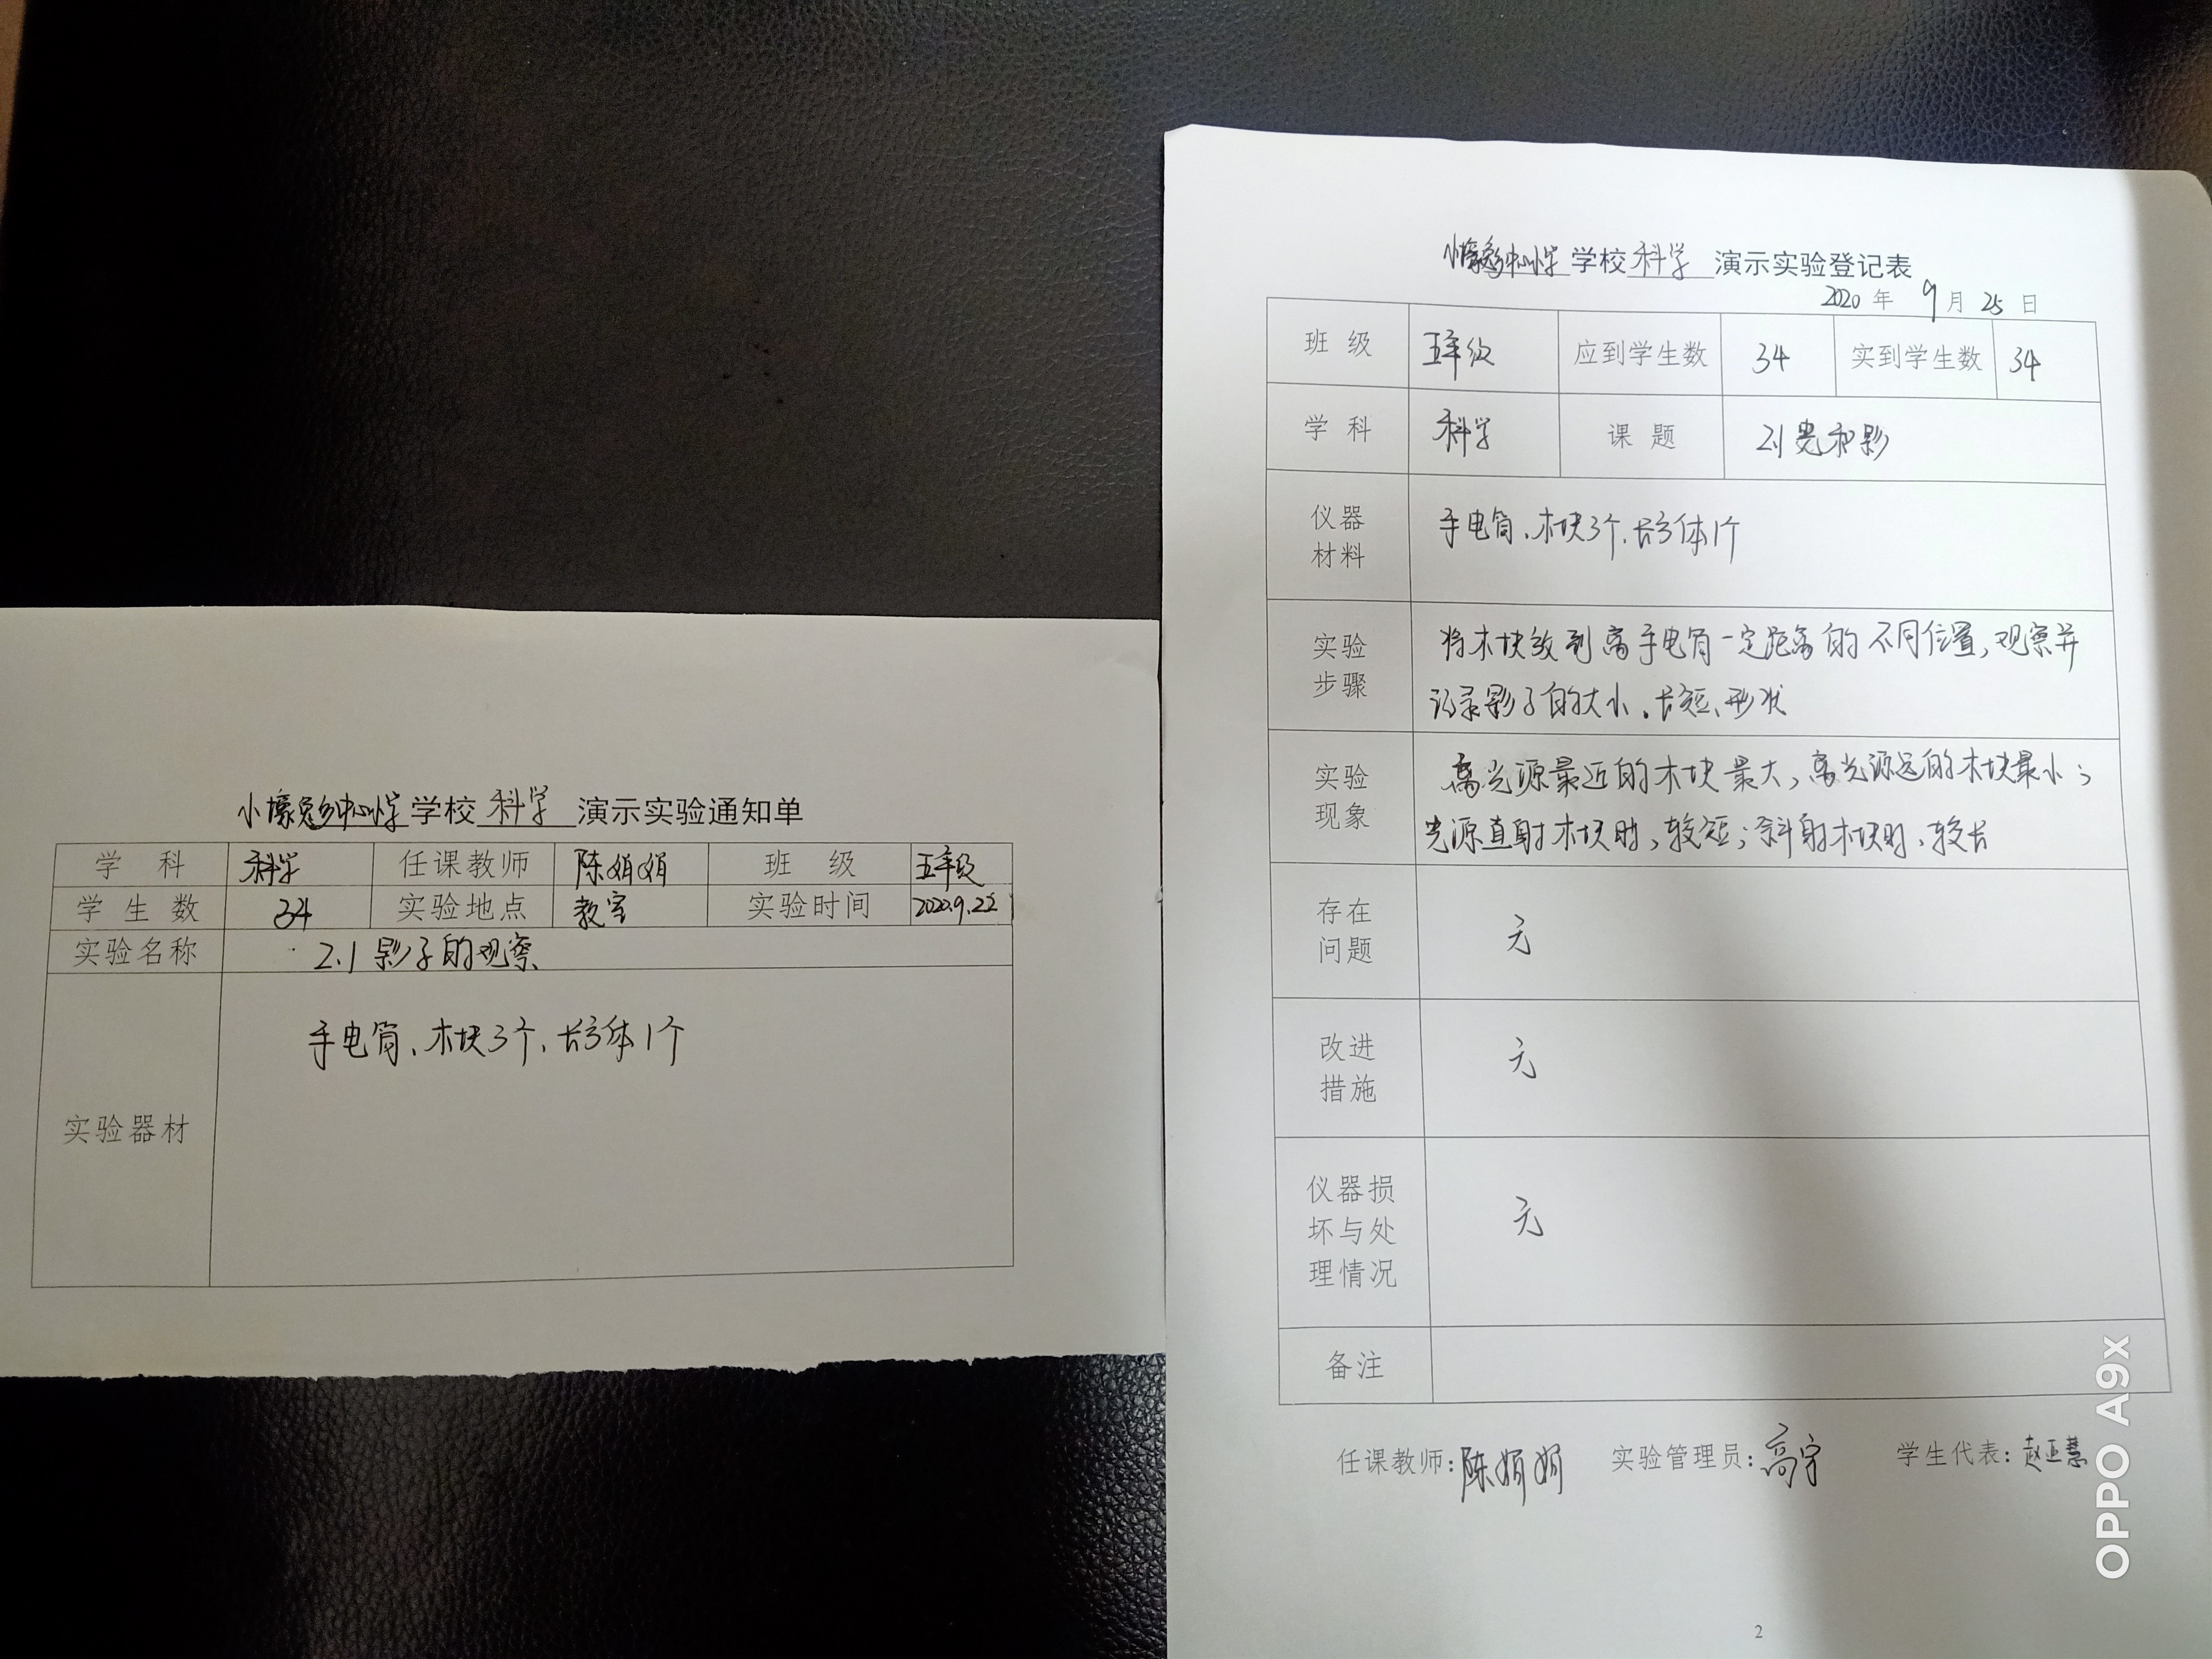 小壕兔乡中心小学学校科学演示实验通知单
学 科 科学 任课教师 陈娟娟 班 级 五年级
学生数 34 实验地点 教室 实验时间 2020.9.22
实验名称 2.1 影子的观察
实验器材 手电筒、木块3个、长方体1个
小壕兔乡中心小学学校科学演示实验登记表
2020年 9月25日
班 级 五年级 应到学生数 34 实到学生数 34
学 科 科学 课 题 2.1光和影
仪器
材料
手电筒、木块3个、长方体1个
实验
步骤
将木块放到离手电筒一定距离的不同位置,观察并
记录影子的大小、长短、形状
实验
现象
离光源最近的木块最大,离光源远的木块最小;
光源直射木块时,较短;斜射木块时,较长
存在
问题
无
改进
措施
无
仪器损
坏与处
理情况
无
备注
任课教师:陈娟娟 实验管理员:高宇 学生代表:赵亚慧
2
OPPO A9x